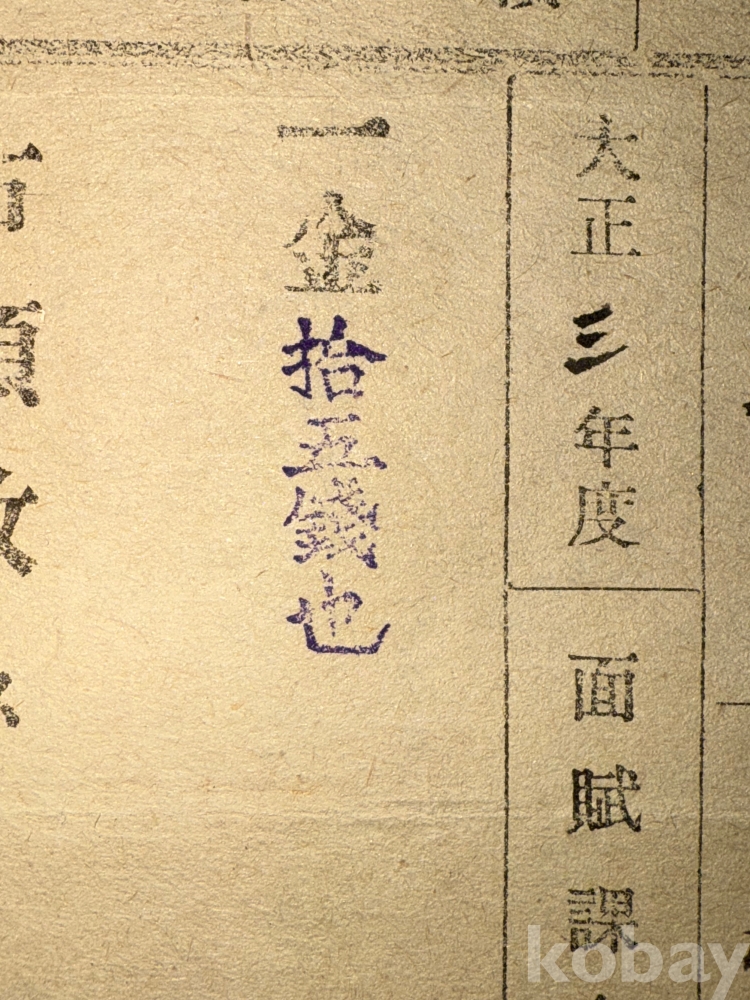 大正三年度
面賦課
一金拾五錢也
領收
kobay